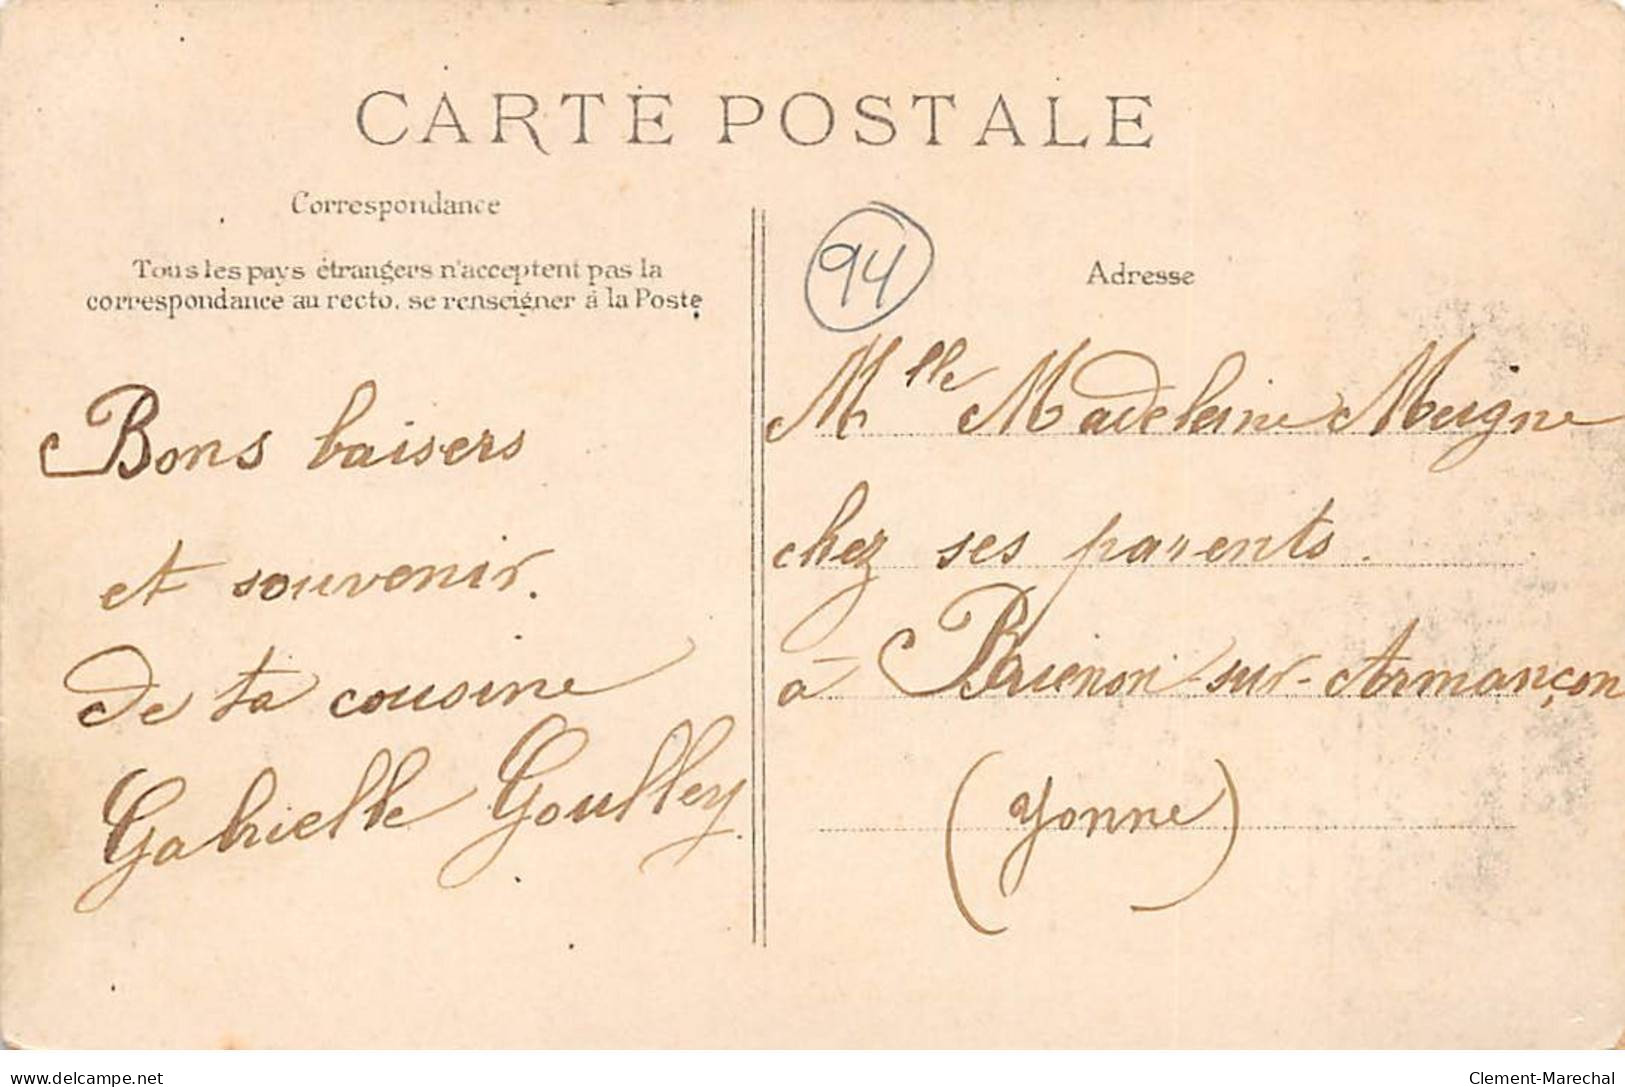 CARTE POSTALE
Correspondance
Tous les pays étrangers n'acceptent pas la
correspondance au recto, se renseigner à la Poste
Bons baisers
et souvenir.
de ta cousine
Gabrielle Goulley
94
Adresse
Mlle Madeleine Meigne
chez ses parents.
à Brienon-sur-Armançon
(Yonne)
delcampe.net
Clement-Marechal